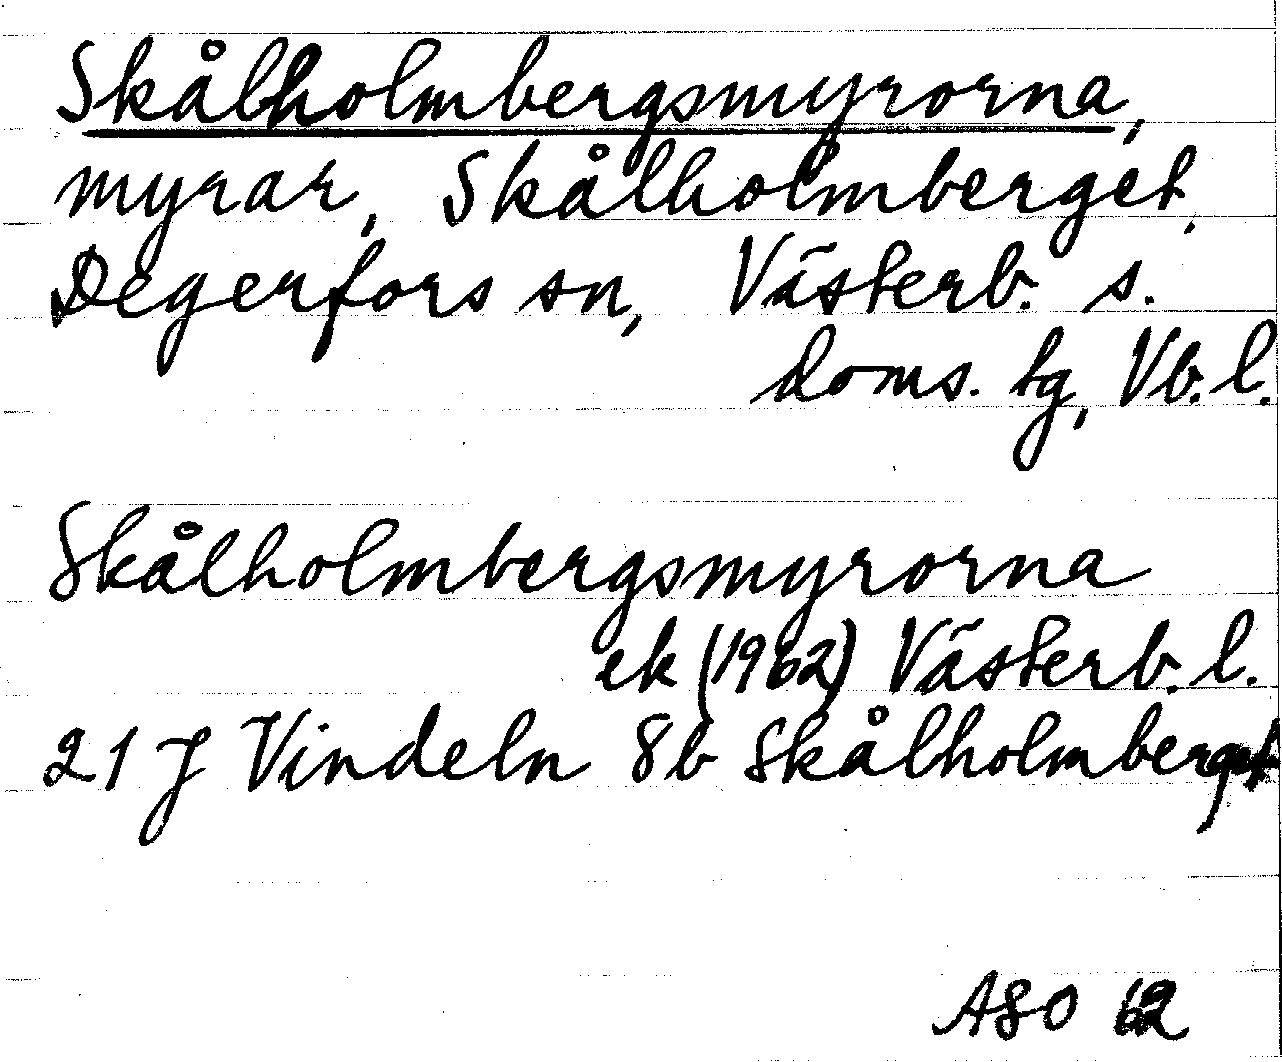 Skålholmbergsmyrorna,
myrar, Skålholmberget,
Degerfors sn, Västerb. s.
doms. tg, Vb. l.
Skålholmbergsmyrorna
ek (1962) Västerb. l.
21 J Vindeln 8b Skålholmberget
ASO 62